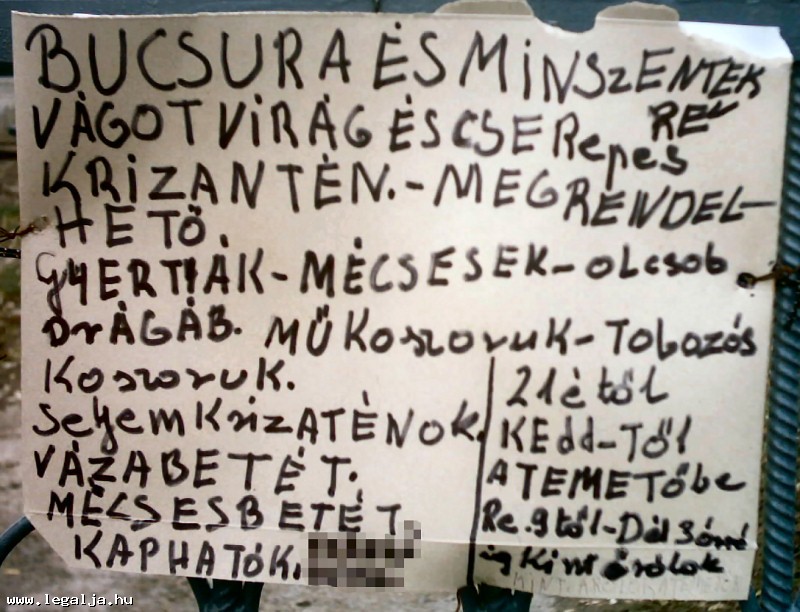 BUCSURA ÉS MINSZENTEK
RE
VÁGOT VIRÁG ÉS CSERepes
KRIZANTÉN.-MEGRENDEL-
HETŐ.
GYERTJÁK-MÉCSESEK-olcsob
DrÁGÁB. MŰKoszoruK-Tobozós
Koszoruk.
SelyemKrizATÉNOK.
VÁZABETÉT.
MÉCSESBETÉT
KAPHATÓK.
21étől
KEdd-Től
A TEMETŐbe
Re.9től-Dél
Kint
www.legalja.hu